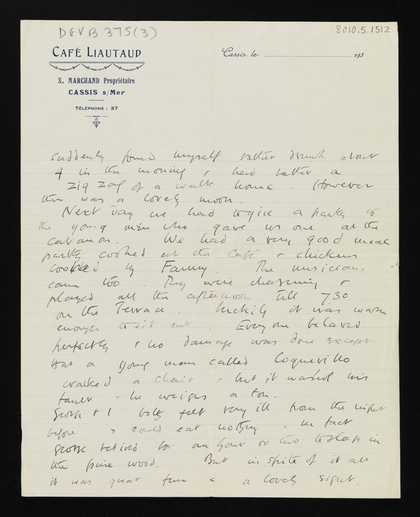 DEVB 375(3)
8010.5.1512
CAFÉ LIAUTAUD
X. MARCHAND Propriétaire
CASSIS s/Mer
TÉLÉPHONE : 87
Cassis, le 193
suddenly found myself rather drunk about
4 in the morning & had rather a
zig zag of a walk home. However
there was a lovely moon.
Next day we had to give a party to
the young men who gave us one at the
cabanon. We had a very good meal
partly cooked at the Café & chickens
cooked by Fanny. The musicians
came too. They were charming &
played all the afternoon till 7.30
on the Terrace. Luckily it was warm
enough to sit out. Everyone behaved
perfectly & no damage was done except
that a young man called Coquevillo
cracked a chair - but it wasnt his
fault - he weighs a ton.
George & I both felt very ill from the night
before & could eat nothing. In fact
George retired for an hour or two to sleep in
the pine wood. But in spite of it all
it was great fun & a lovely sight.